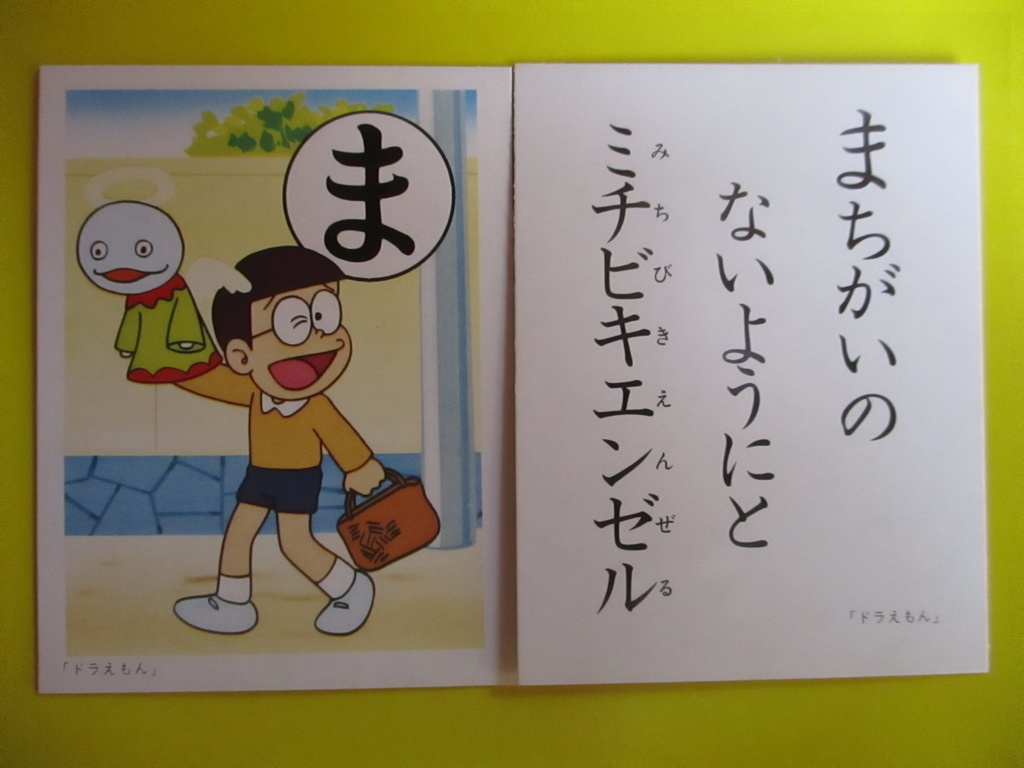 ま
「ドラえもん」
まちがいの
ないようにと
ミチビキエンゼル
みちびきえんぜる
「ドラえもん」